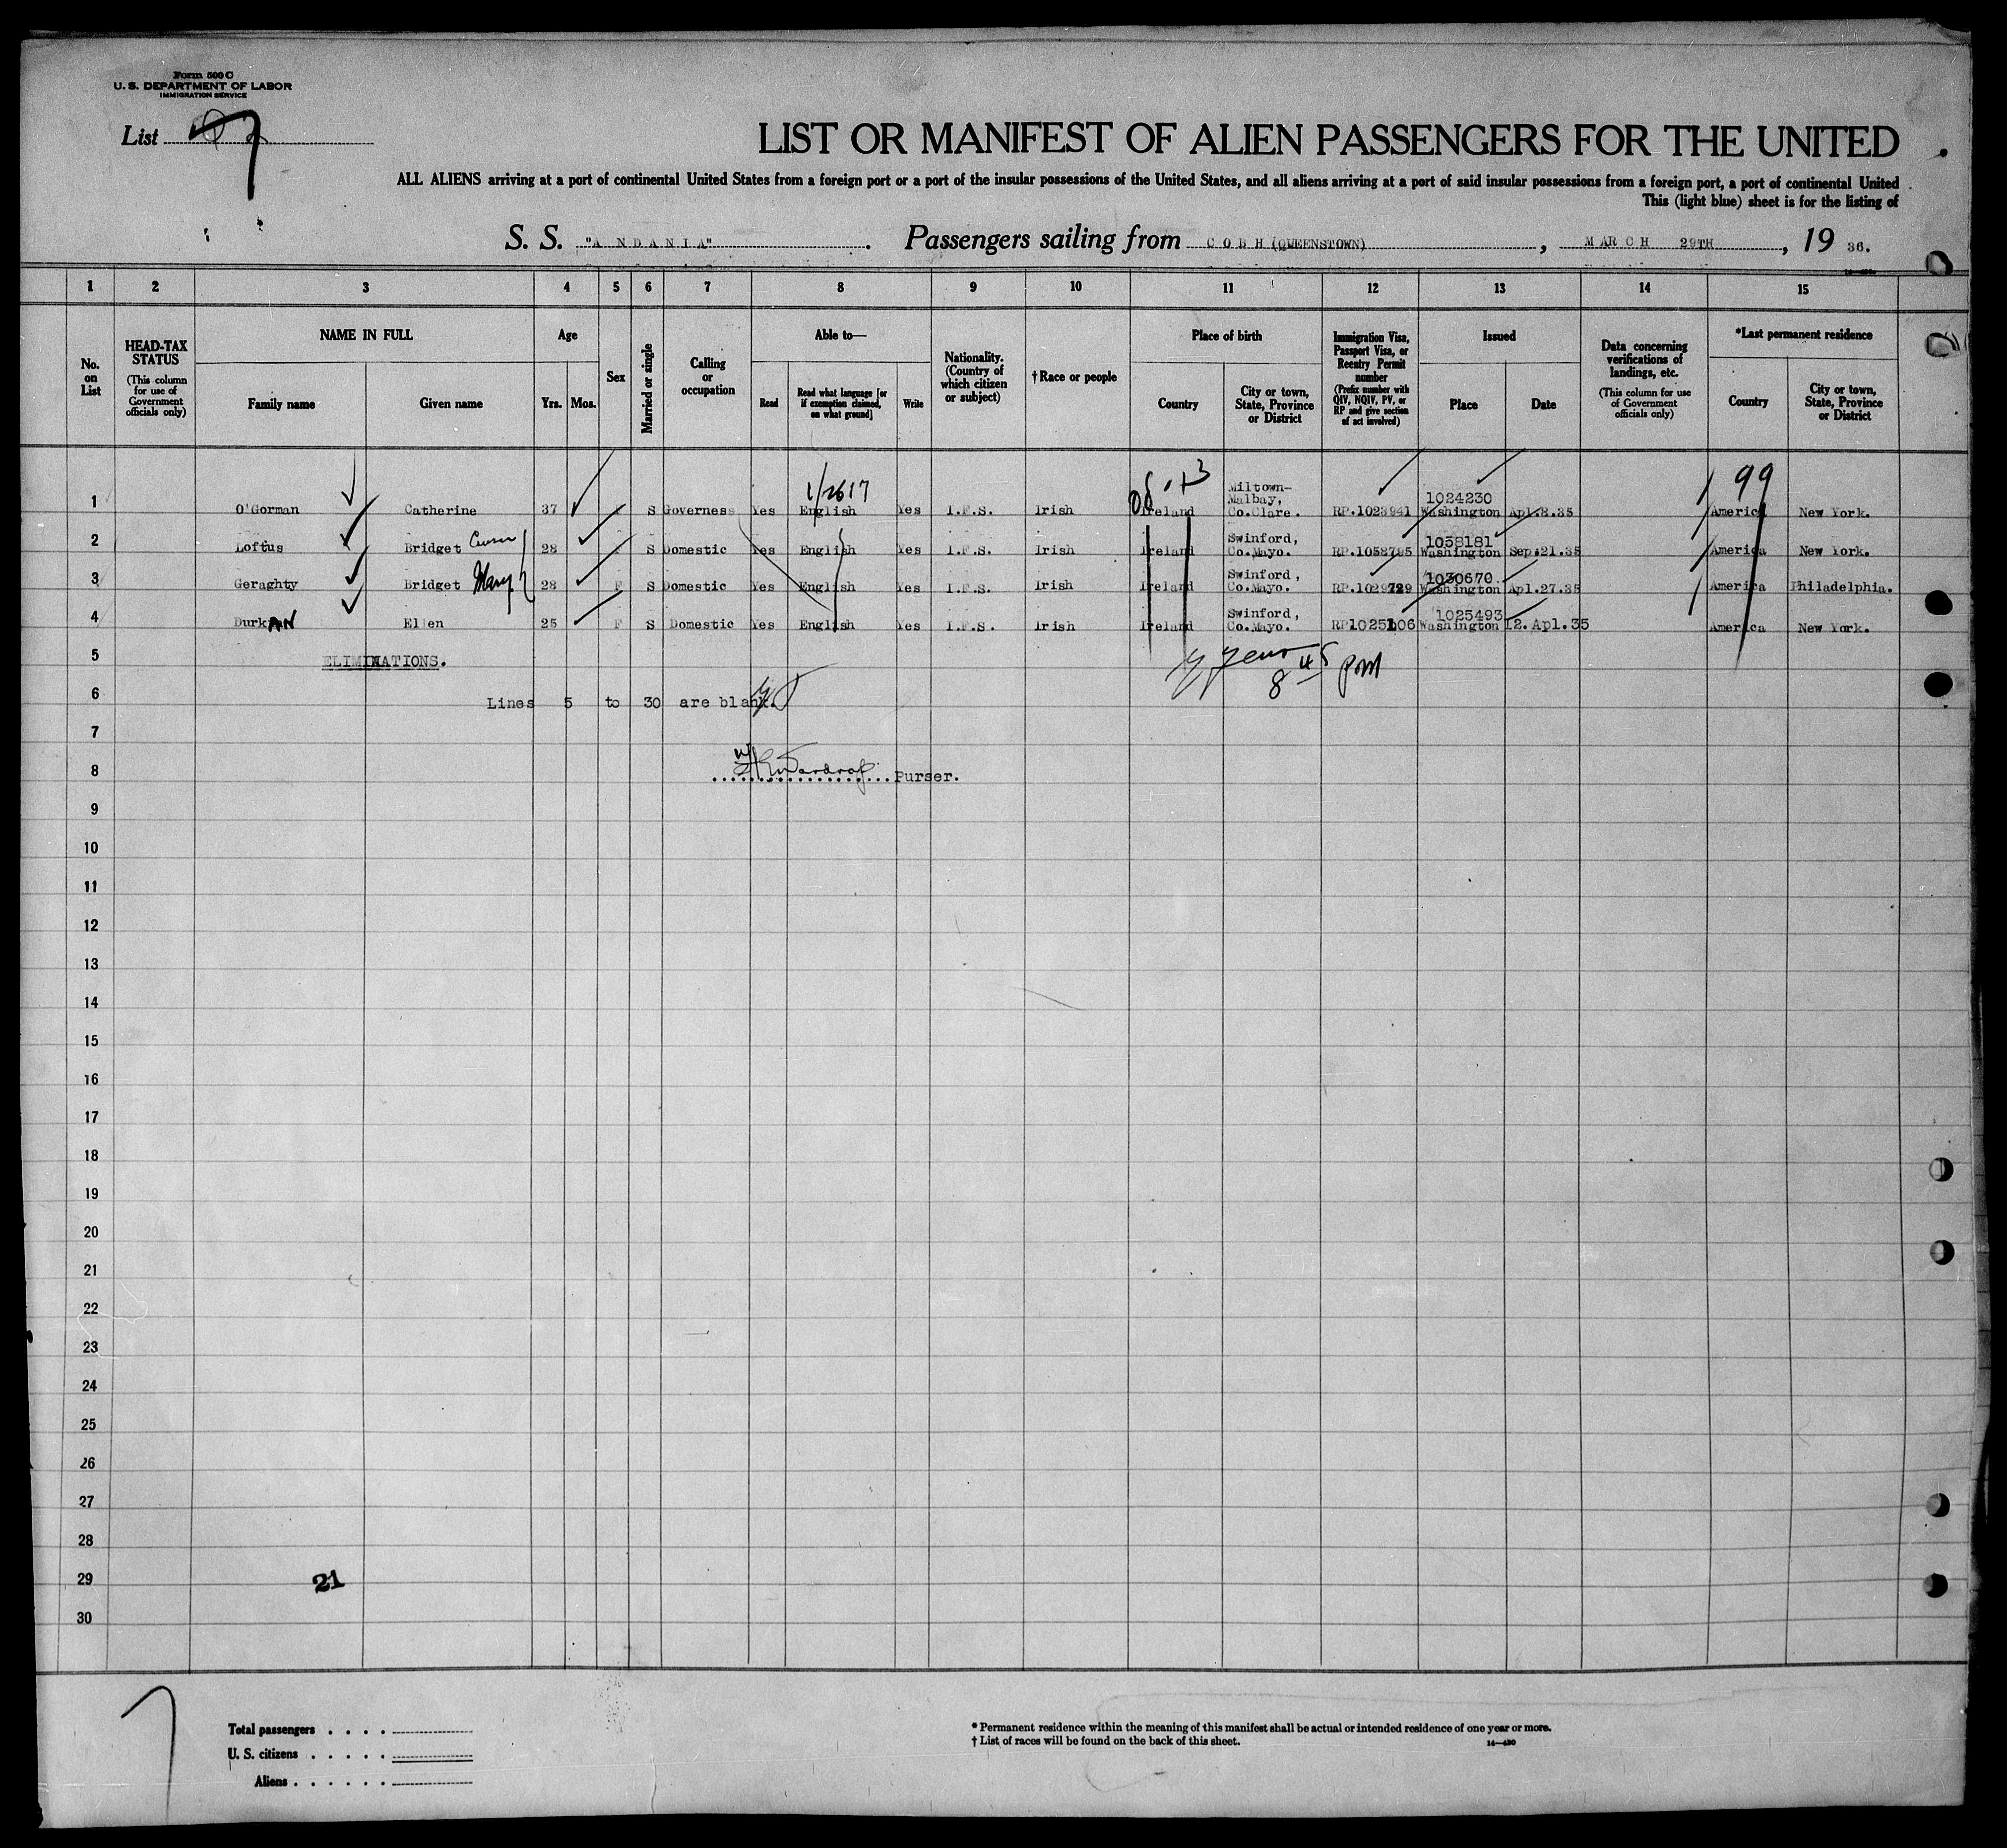 Form 500 C
U. S. DEPARTMENT OF LABOR
IMMIGRATION SERVICE
List 7
LIST OR MANIFEST OF ALIEN PASSENGERS FOR THE UNITED
ALL ALIENS arriving at a port of continental United States from a foreign port or a port of the insular possessions of the United States, and all aliens arriving at a port of said insular possessions from a foreign port, a port of continental United
This (light blue) sheet is for the listing of
S. S. "A N D A N I A". Passengers sailing from C O B H (QUEENSTOWN), M A R C H 29TH, 19 36.
1 2 3 4 5 6 7 8 9 10 11 12 13 14 15
No. on List
HEAD-TAX STATUS
(This column for use of Government officials only)
NAME IN FULL
Family name
Given name
Age
Yrs.
Mos.
Sex
Married or single
Calling or occupation
Able to—
Read
Read what language [or if exemption claimed, on what ground]
Write
Nationality. (Country of which citizen or subject)
† Race or people
Place of birth
Country
City or town, State, Province or District
Immigration Visa, Passport Visa, or Reentry Permit number
(Prefix number with QIV, NQIV, PV, or RP and give section of act involved)
Issued
Place
Date
Data concerning verifications of landings, etc.
(This column for use of Government officials only)
*Last permanent residence
Country
City or town, State, Province or District
99
1 O'Gorman Catherine 37 F S Governess Yes English Yes I.F.S. Irish Ireland Miltown-Malbay, Co.Clare. RP.1023941 1024230 Washington Apl.8.35 America New York.
2 Loftus Bridget 28 F S Domestic Yes English Yes I.F.S. Irish Ireland Swinford, Co.Mayo. RP.1058785 1058181 Washington Sep.21.35 America New York.
3 Geraghty Bridget Mary 28 F S Domestic Yes English Yes I.F.S. Irish Ireland Swinford, Co.Mayo. 1030670 Washington Apl.27.35 America Philadelphia.
4 DurkAN Ellen 25 F S Domestic Yes English Yes I.F.S. Irish Ireland Swinford, Co.Mayo. 1025493 Washington 12.Apl.35 America New York.
5 ELIMINATIONS.
8 45 pm
6 Lines 5 to 30 are blank.
7
8 Purser.
9
10
11
12
13
14
15
16
17
18
19
20
21
22
23
24
25
26
27
28
29 21
30
Total passengers . . . .
U. S. citizens . . . . .
Aliens . . . . . .
* Permanent residence within the meaning of this manifest shall be actual or intended residence of one year or more.
† List of races will be found on the back of this sheet.
14—430